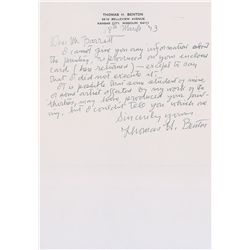 THOMAS H. BENTON
3616 BELLEVIEW AVENUE
KANSAS CITY, MISSOURI 64111
18th March '73
Dear Mr. Barratt
I cannot give you any information about
the painting, reproduced on your enclosed
card (here returned) – except to say
that I did not execute it.
It is possible that some student of mine
or some artist affected by my work of the
thirties may have produced your paint-
ing, but I couldn't tell you which one
Sincerely yours
Thomas H. Benton